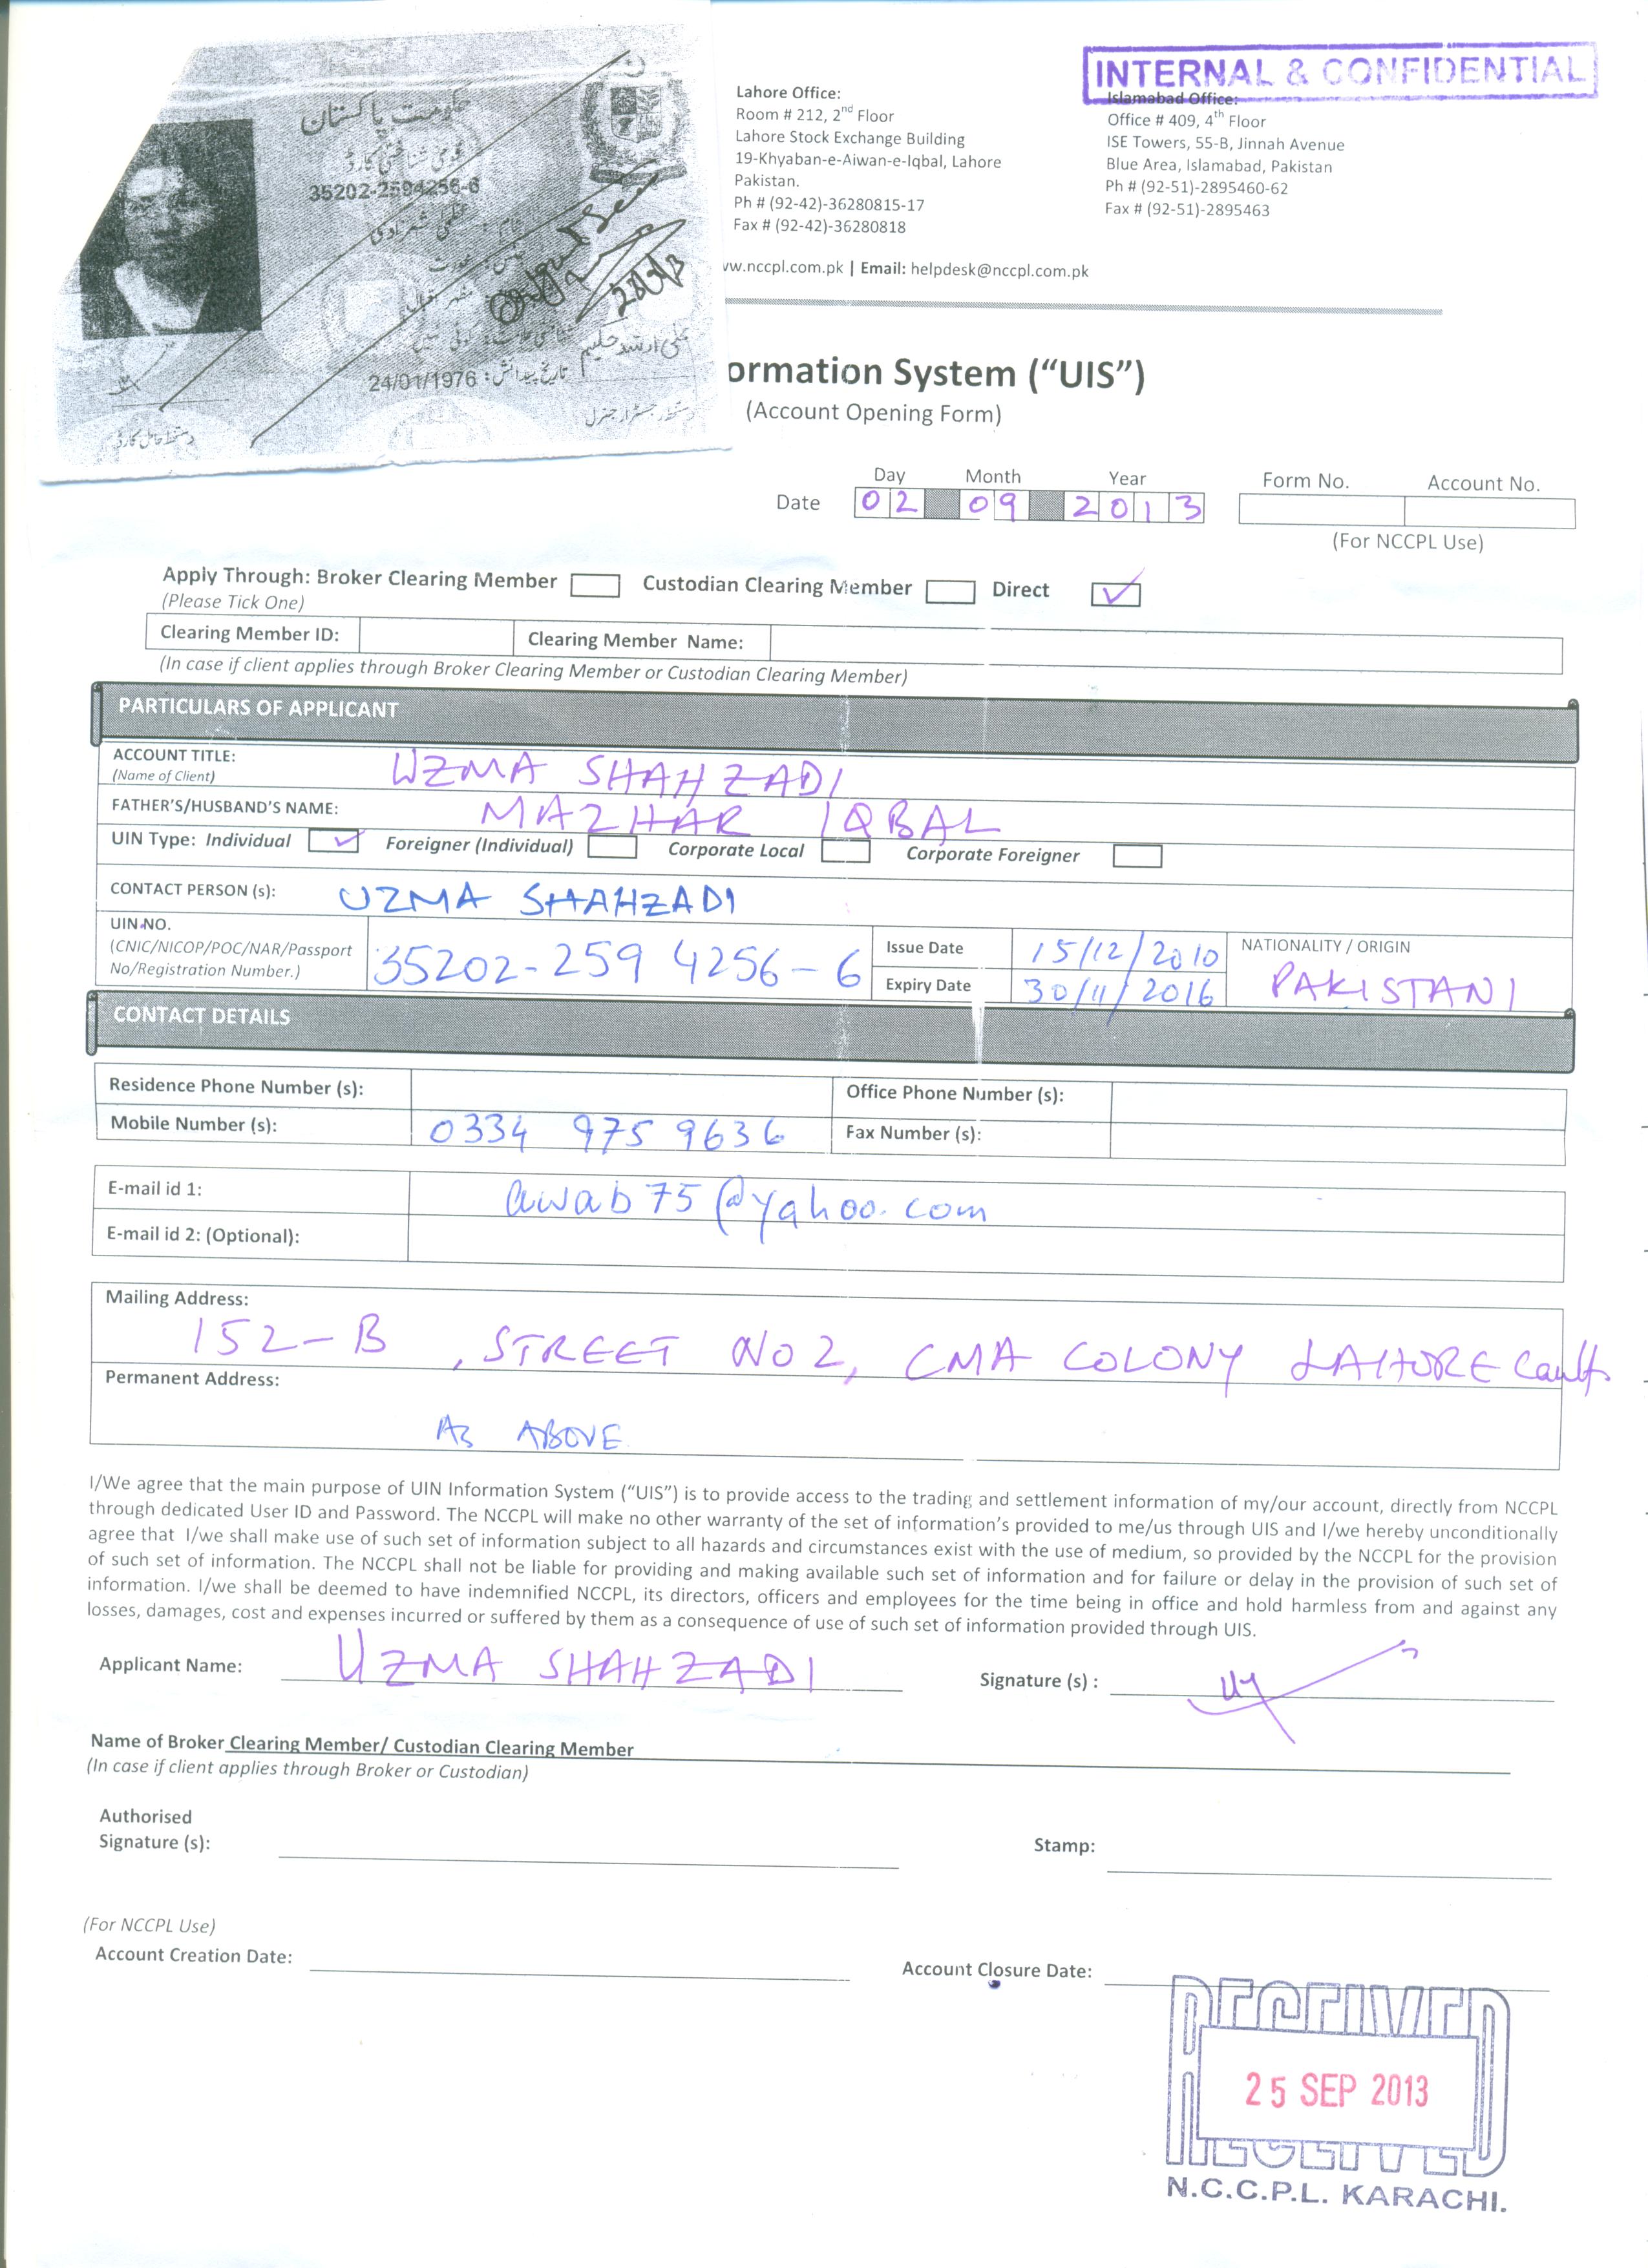 حکومت پاکستان
قومی شناختی کارڈ
35202-2594256-6
نام: عظمیٰ شہزادی
جنس: عورت
مظہر اقبال
شناختی علامت: کوئی نہیں
تاریخ پیدائش: 24/01/1976
دستخط حامل کارڈ
دستخط رجسٹرار جنرل
INTERNAL & CONFIDENTIAL
Lahore Office:
Room # 212, 2nd Floor
Lahore Stock Exchange Building
19-Khyaban-e-Aiwan-e-Iqbal, Lahore
Pakistan.
Ph # (92-42)-36280815-17
Fax # (92-42)-36280818
Islamabad Office:
Office # 409, 4th Floor
ISE Towers, 55-B, Jinnah Avenue
Blue Area, Islamabad, Pakistan
Ph # (92-51)-2895460-62
Fax # (92-51)-2895463
ww.nccpl.com.pk | Email: helpdesk@nccpl.com.pk
ormation System (“UIS”)
(Account Opening Form)
Day Month Year Form No. Account No.
Date 02 09 2013
(For NCCPL Use)
Apply Through: Broker Clearing Member Custodian Clearing Member Direct ✓
(Please Tick One)
Clearing Member ID: Clearing Member Name:
(In case if client applies through Broker Clearing Member or Custodian Clearing Member)
PARTICULARS OF APPLICANT
ACCOUNT TITLE: UZMA SHAHZADI
(Name of Client)
FATHER'S/HUSBAND'S NAME: MAZHAR IQBAL
UIN Type: Individual ✓ Foreigner (Individual) Corporate Local Corporate Foreigner
CONTACT PERSON (s): UZMA SHAHZADI
UIN NO.
(CNIC/NICOP/POC/NAR/Passport
No/Registration Number.)
35202-259 4256-6
Issue Date 15/12/2010
Expiry Date 30/11/2016
NATIONALITY / ORIGIN
PAKISTANI
CONTACT DETAILS
Residence Phone Number (s): Office Phone Number (s):
Mobile Number (s): 0334 975 9636 Fax Number (s):
E-mail id 1: awab75@yahoo.com
E-mail id 2: (Optional):
Mailing Address:
152-B, STREET NO 2, CMA COLONY LAHORE Cantt.
Permanent Address:
As ABOVE
I/We agree that the main purpose of UIN Information System (“UIS”) is to provide access to the trading and settlement information of my/our account, directly from NCCPL
through dedicated User ID and Password. The NCCPL will make no other warranty of the set of information's provided to me/us through UIS and I/we hereby unconditionally
agree that I/we shall make use of such set of information subject to all hazards and circumstances exist with the use of medium, so provided by the NCCPL for the provision
of such set of information. The NCCPL shall not be liable for providing and making available such set of information and for failure or delay in the provision of such set of
information. I/we shall be deemed to have indemnified NCCPL, its directors, officers and employees for the time being in office and hold harmless from and against any
losses, damages, cost and expenses incurred or suffered by them as a consequence of use of such set of information provided through UIS.
Applicant Name: UZMA SHAHZADI Signature (s) :
Name of Broker Clearing Member/ Custodian Clearing Member
(In case if client applies through Broker or Custodian)
Authorised
Signature (s): Stamp:
(For NCCPL Use)
Account Creation Date: Account Closure Date:
RECEIVED
25 SEP 2013
RECEIVED
N.C.C.P.L. KARACHI.